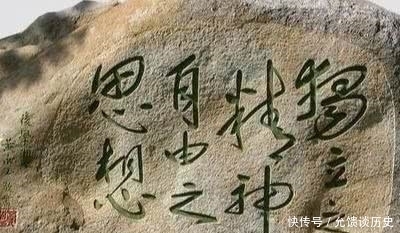 獨立之
精神
自由之
思想
快传号/允馈谈历史